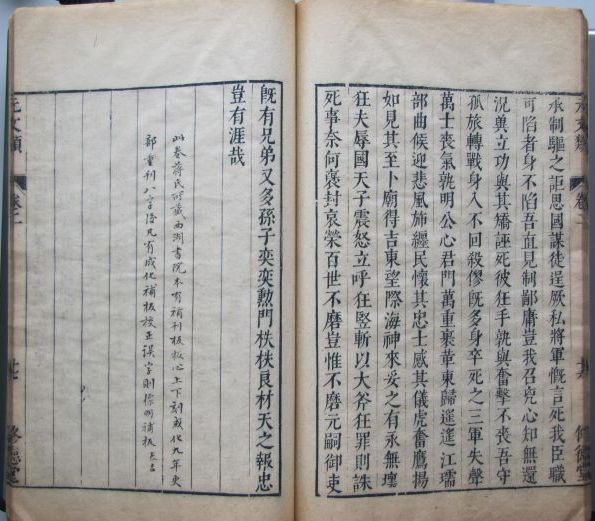 元文類　卷二
修德堂
承制驅之詎思國謀徒逞厥私將軍慨言死我臣職
可陷者身不陷吾直見制鄙庸豈我召心知無還
況立功與其矯誣死彼狂手孰與奮擊不喪吾守
孤旅轉戰身入不回殺僇旣多身卒死之三軍失聲
萬士喪氣孰明公心君門萬重裹革東歸遙遙江壖
部曲候迎悲風斾纒民懷其忠士感其儀虎奮鷹揚
如見其至卜廟得吉東望際海神來妥之有永無壞
狂夫辱國天子震怒立呼狂竪斬以大斧狂罪則誅
死事奈何褒封哀榮百世不磨豈惟不磨元嗣御史
旣有兄弟又多孫子奕奕勲門秩秩良材天之報忠
豈有涯哉
此卷蔣氏所藏西湖書院本有補刊板板心上下刻成化九年吏
部重刊八字凡有成化補板校正誤字則標明補板
元文類　卷二
修德堂